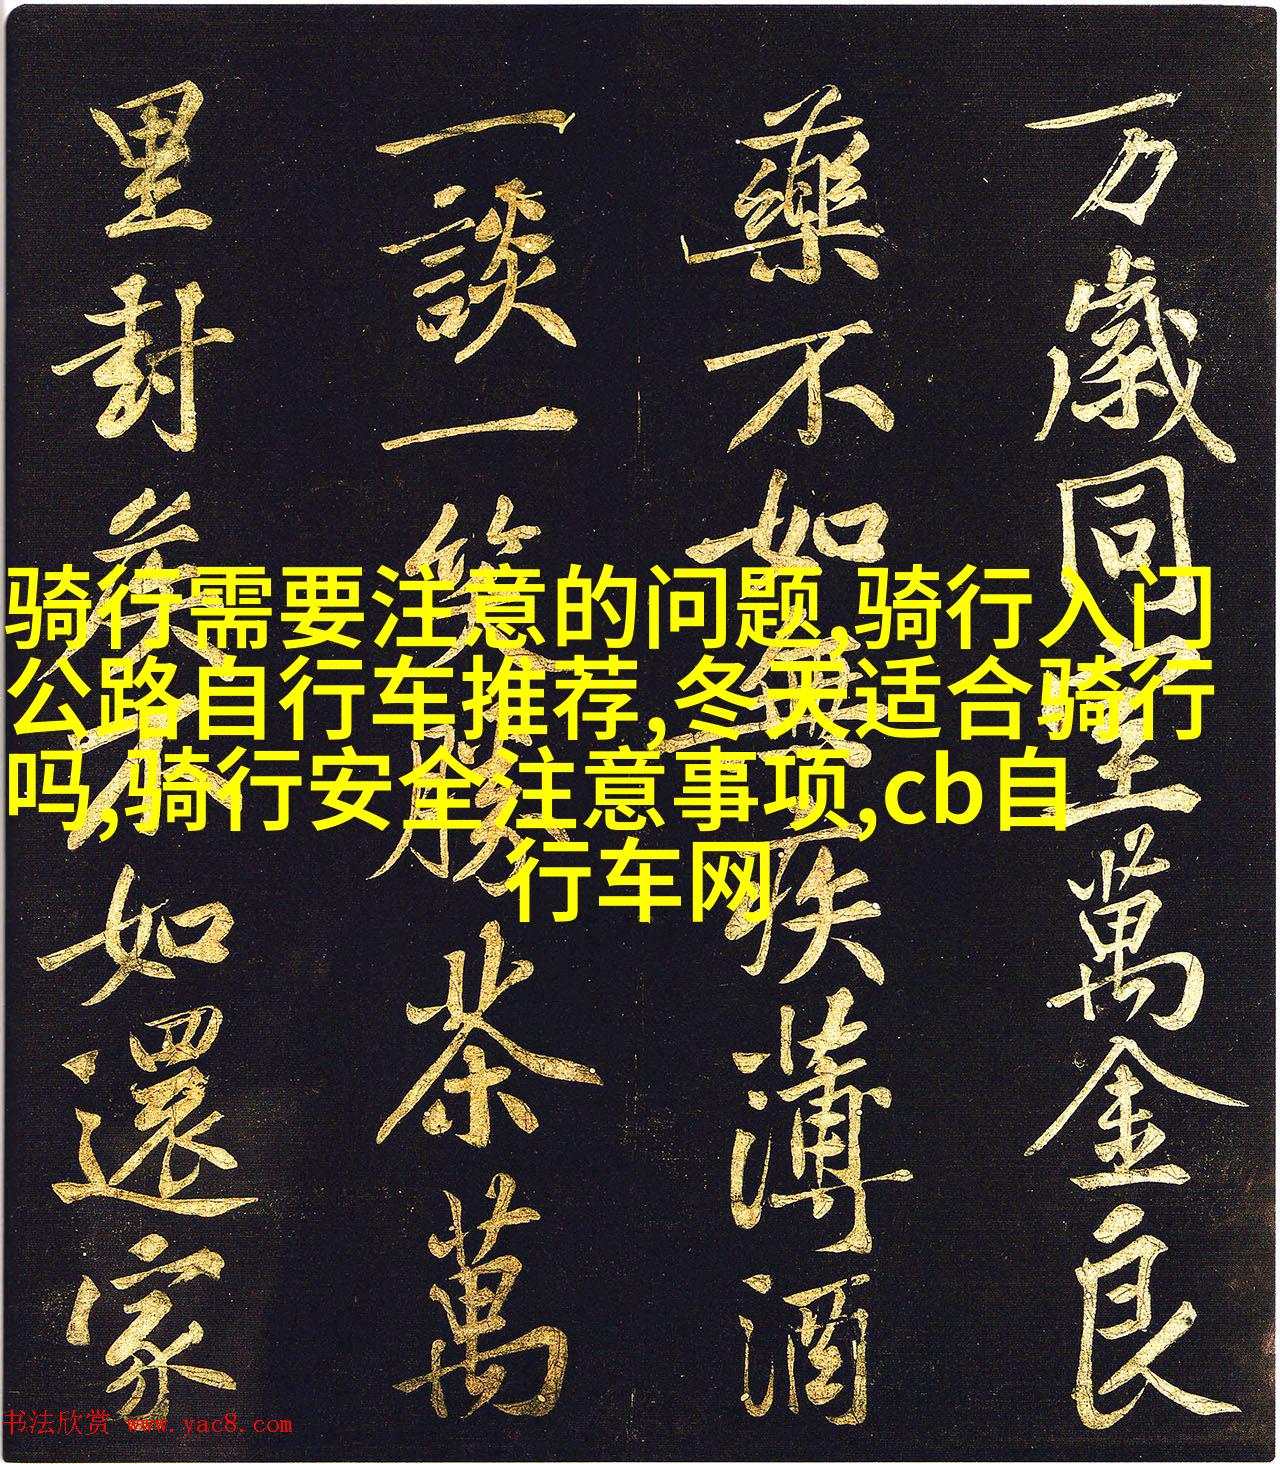 万歲同室萬金良
藥不如無疾薄酒
一談一笑勝茶萬
里封矦不如還家
骑行需要注意的问题,骑行入门
公路自行车推荐,冬天适合骑行
吗,骑行安全注意事项,cb自
行车网
书法欣赏 www.yac8.com